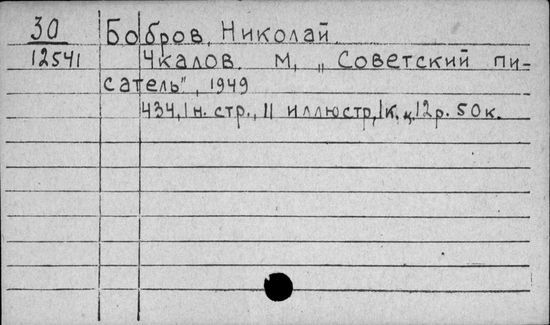 30 Бобров, Николай.
12541 Чкалов. М, „Советский пи-
сатель", 1949
434, 1 н. стр., 11 иллюстр, 1к. ц. 12 р. 50 к.